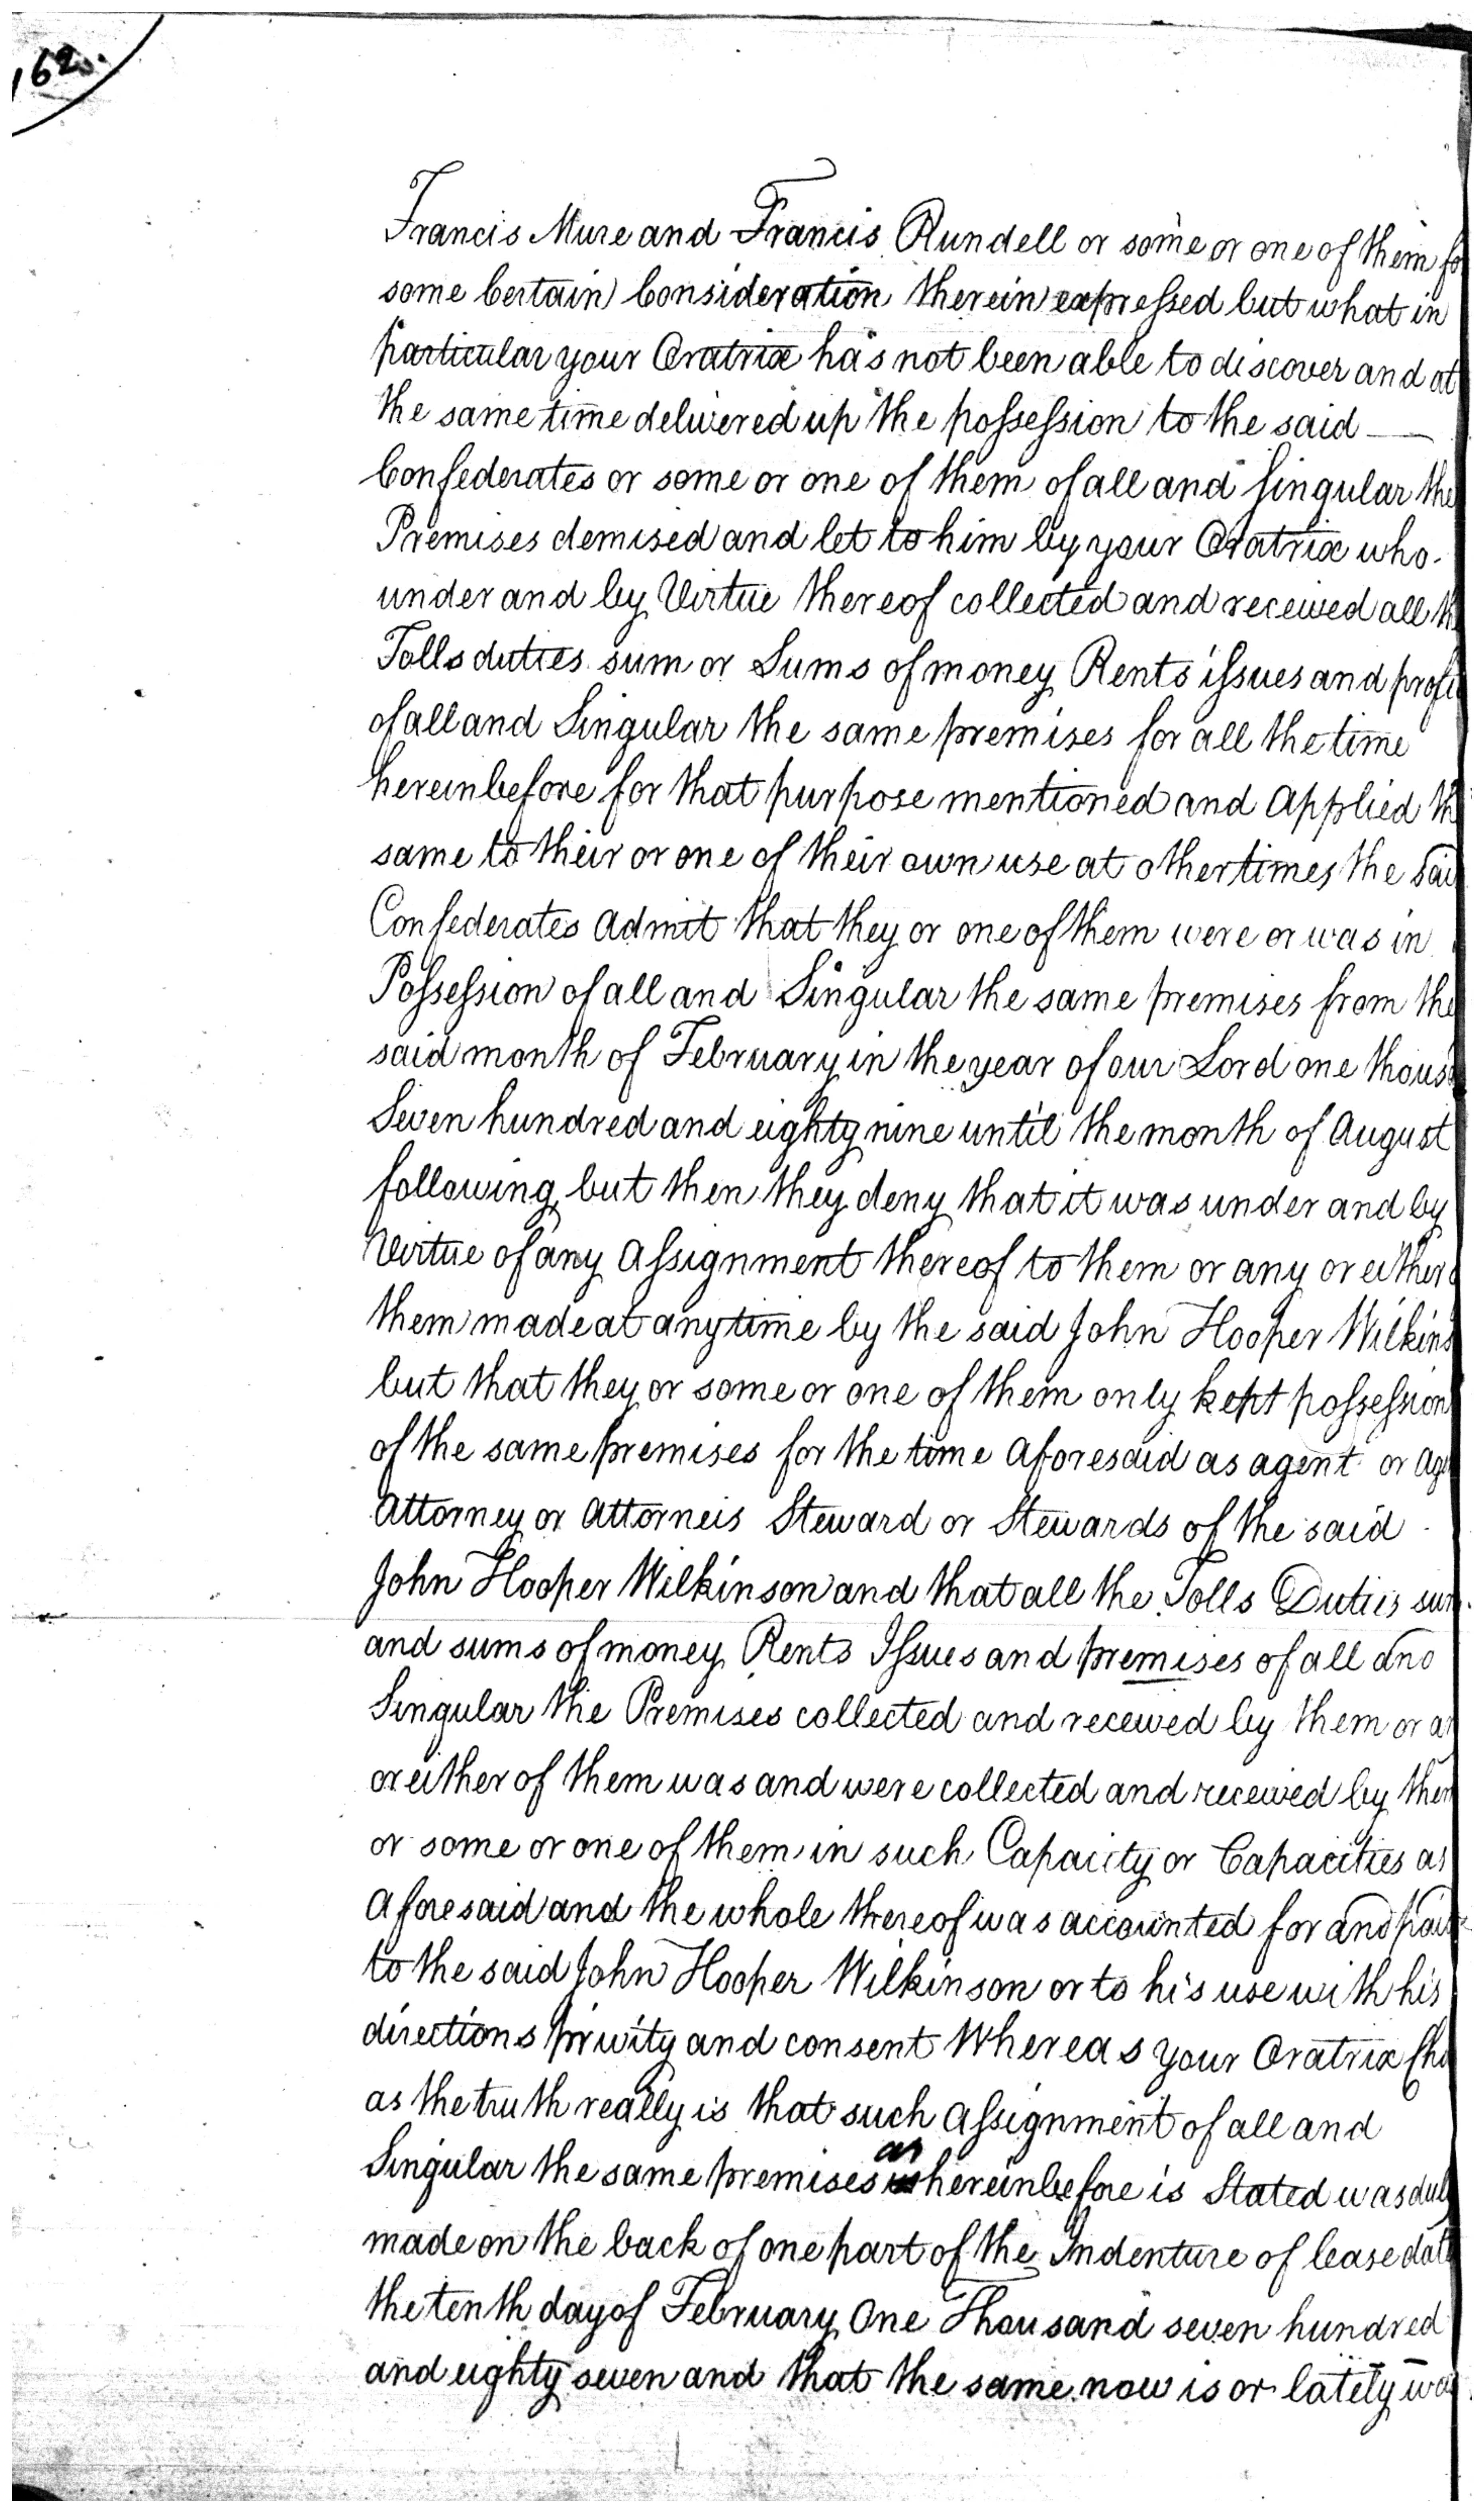 162.
Francis Mure and Francis Rundell or some or one of them fo
some Certain Consideration therein expressed but what in
particular your Oratrix has not been able to discover and at
the same time delivered up the possession to the said
Confederates or some or one of them of all and Singular the
Premises demised and let to him by your Oratrix who
under and by Virtue thereof collected and received all th
Tolls duties sum or Sums of money Rents issues and profi
of all and Singular the same premises for all the time
hereinbefore for that purpose mentioned and Applied th
same to their or one of their own use at other times the Sai
Confederates Admit that they or one of them were or was in
Possession of all and Singular the same premises from the
said month of February in the year of our Lord one thous
Seven hundred and eighty nine until the month of August
following but then they deny that it was under and by
Virtue of any Assignment thereof to them or any or either o
them made at any time by the said John Hooper Wilkins
but that they or some or one of them only kept possession
of the same premises for the time Aforesaid as agent or Age
Attorney or Attorneis Steward or Stewards of the said
John Hooper Wilkinson and that all the Tolls Duties sum
and sums of money Rents Issues and premises of all and
Singular the Premises collected and received by them or an
or either of them was and were collected and received by them
or some or one of them in such Capacity or Capacities as
Aforesaid and the whole thereof was accounted for and paid
to the said John Hooper Wilkinson or to his use with his
directions privity and consent Whereas your Oratrix Cha
as the truth really is that such Assignment of all and
Singular the same premises as hereinbefore is Stated was dul
made on the back of one part of the Indenture of lease dat
the tenth day of February One Thousand seven hundred
and eighty seven and that the same now is or lately wa